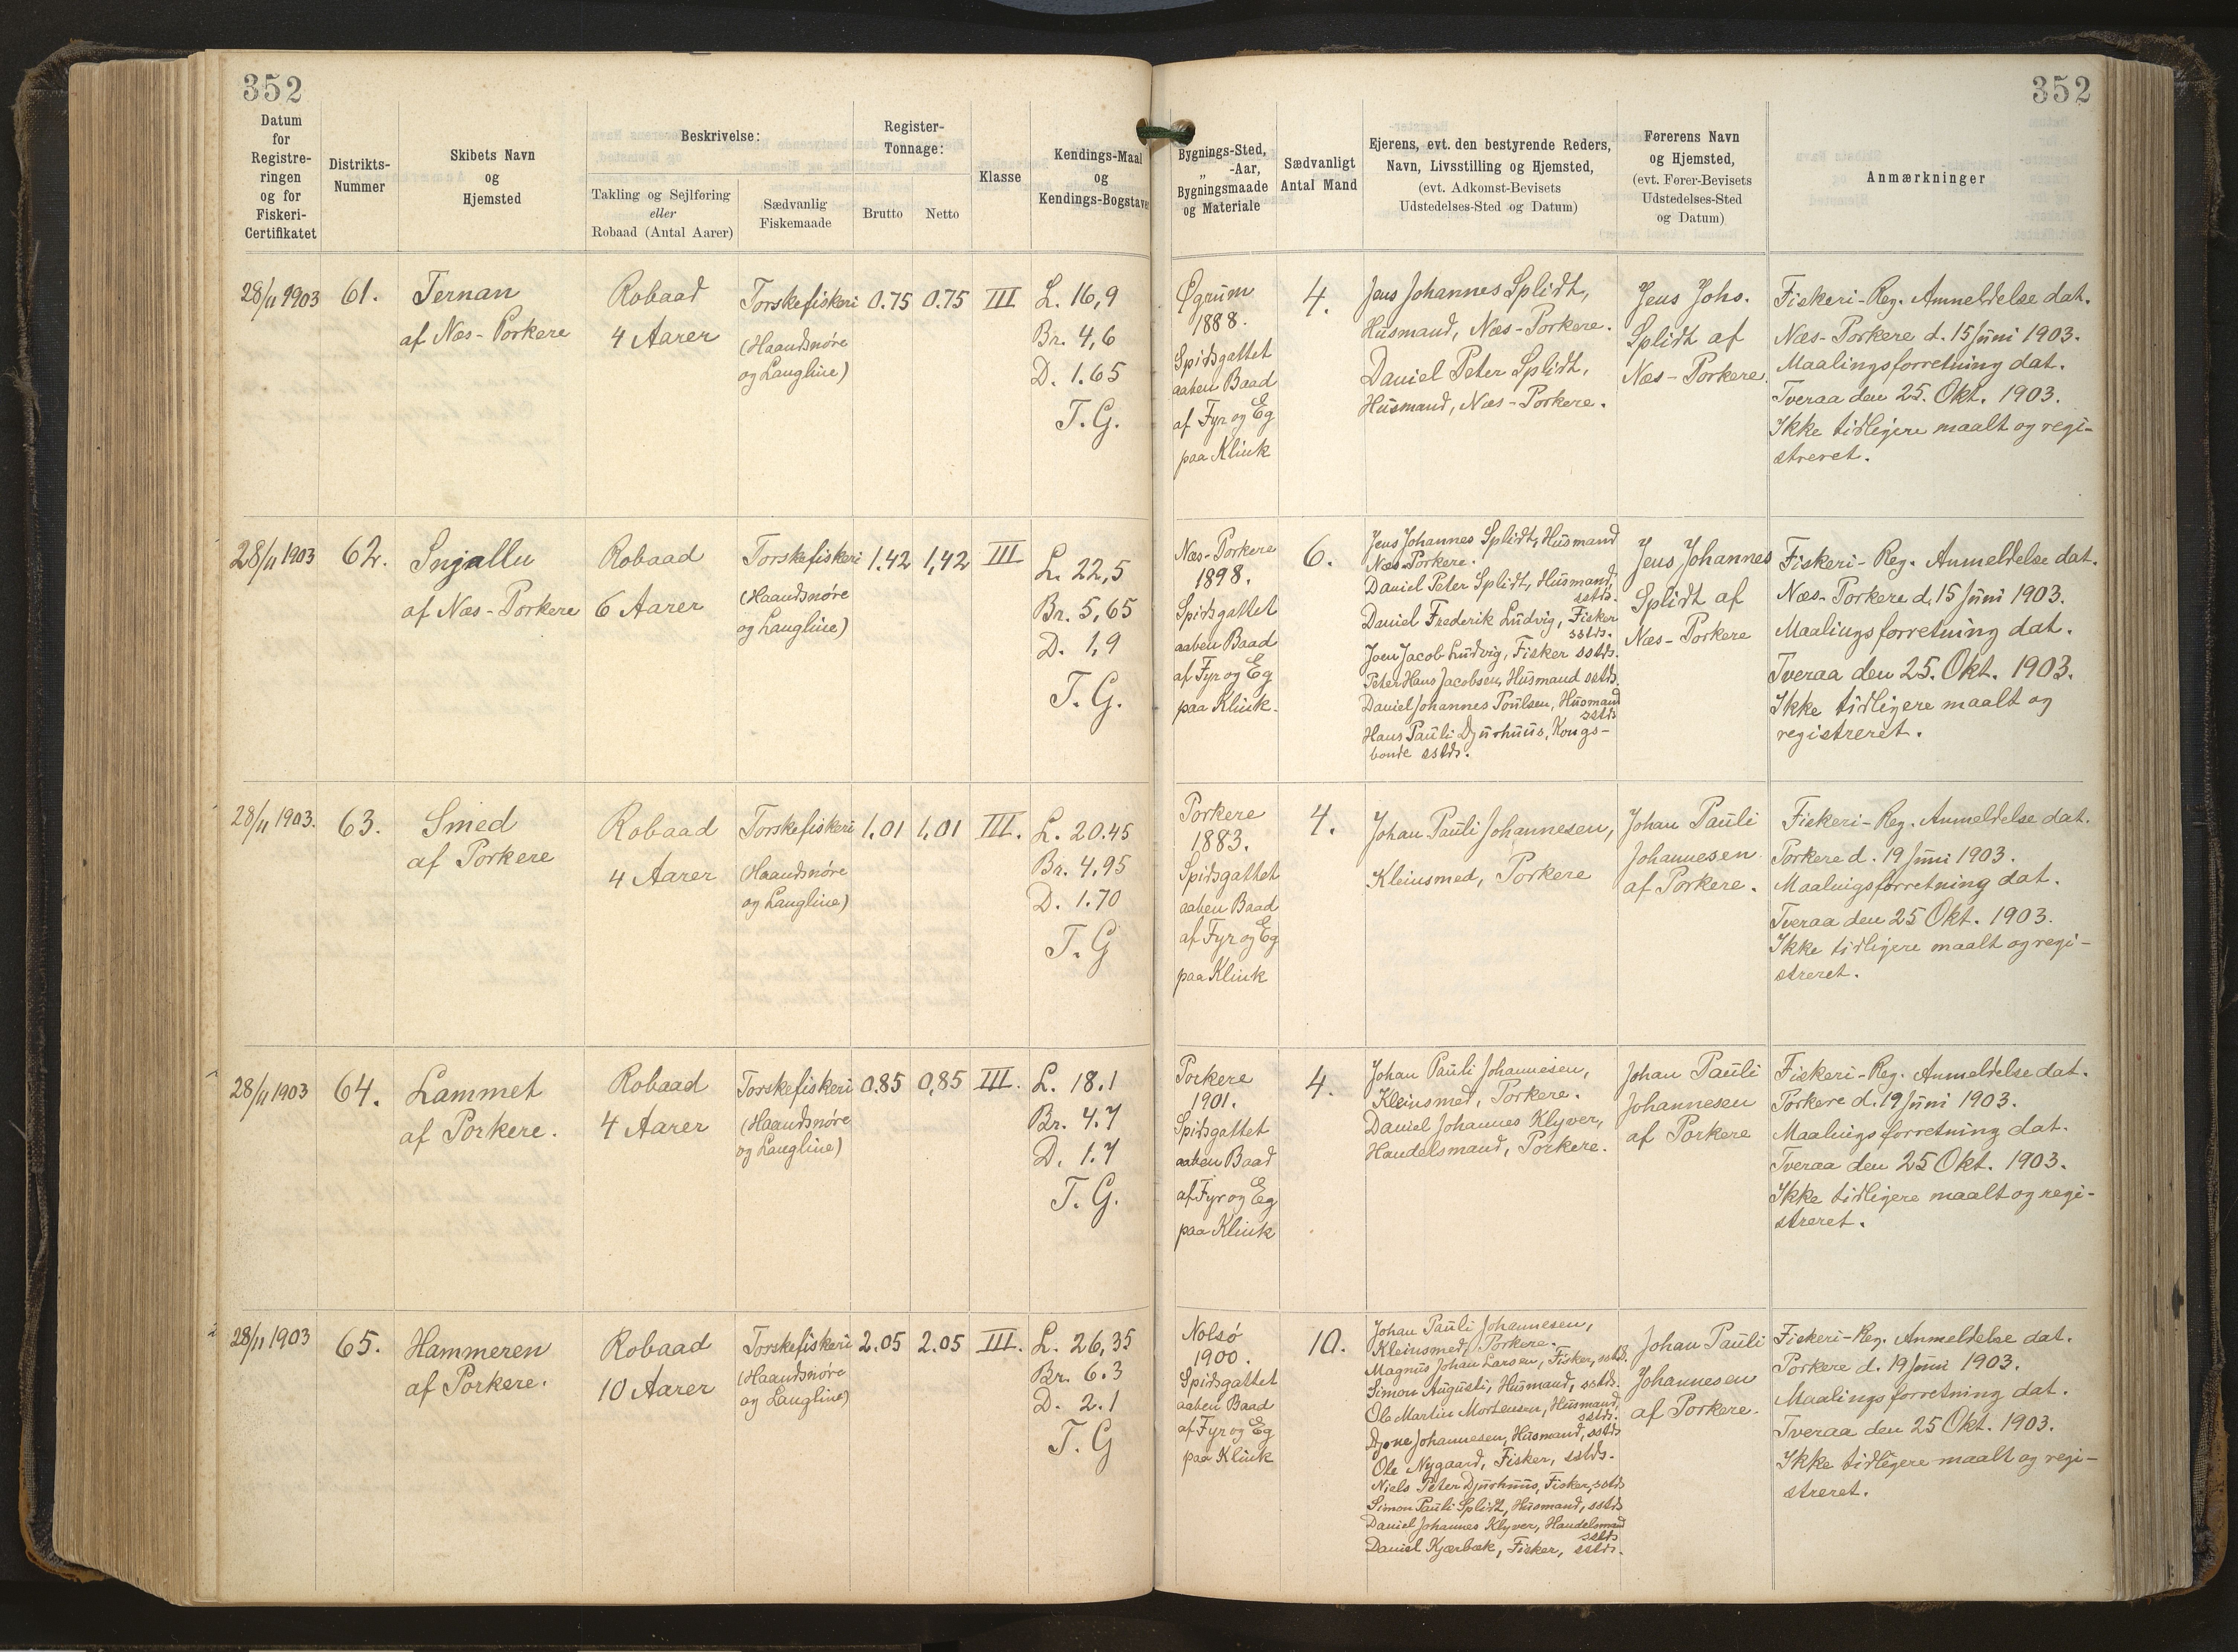 352
352
Datum
for
Registre-
ringen
og for
Fiskeri-
Certifikatet
Distrikts-
Nummer
Skibets Navn
og
Hjemsted
Beskrivelse:
Takling og Sejlføring
eller
Robaad (Antal Aarer)
Sædvanlig
Fiskemaade
Register-
Tonnage:
Brutto
Netto
Klasse
Kendings-Maal
og
Kendings-Bogstaver
Bygnings-Sted,
„ -Aar,
Bygningsmaade
og Materiale
Sædvanligt
Antal Mand
Ejerens, evt. den bestyrende Reders,
Navn, Livsstilling og Hjemsted,
(evt. Adkomst-Bevisets
Udstedelses-Sted og Datum)
Førerens Navn
og Hjemsted,
(evt. Fører-Bevisets
Udstedelses-Sted
og Datum)
Anmærkninger
28/11 1903
61.
Ternan
af Næs-Porkere
Robaad
4 Aarer
Torskefiskeri
(Haandsnøre
og Langline)
0.75
0.75
III
L. 16,9
Br. 4,6
D. 1.65
T. G.
Øgrum
1888.
Spidsgattet
aaben Baad
af Fyr og Eg
paa Klink
4.
Jens Johannes Splidt,
Husmand, Næs-Porkere.
Daniel Peter Splidt,
Husmand, Næs-Porkere.
Jens Johs.
Splidt af
Næs-Porkere.
Fiskeri-Reg. Anmeldelse dat.
Næs-Porkere d. 15 Juni 1903.
Maalingsforretning dat.
Tveraa den 25. Okt. 1903.
Ikke tidligere maalt og regi-
streret.
28/11 1903
62.
Snjallu
af Næs-Porkere
Robaad
6 Aarer
Torskefiskeri
(Haandsnøre
og Langline)
1.42
1,42
III
L. 22,5
Br. 5,65
D. 1,9
T. G.
Næs-Porkere
1898.
Spidsgattet
aaben Baad
af Fyr og Eg
paa Klink.
6.
Jens Johannes Splidt, Husmand
Næs-Porkere.
Daniel Peter Splidt, Husmand,
sstds.
Daniel Frederik Ludvig, Fisker
sstds.
Joen Jacob Ludvig, Fisker sstds.
Peter Hans Jacobsen, Husmand sstds.
Daniel Johannes Poulsen, Husmand
sstds
Hans Pauli Djurhuus, Kongs-
bonde sstds.
Jens Johannes
Splidt af
Næs-Porkere
Fiskeri-Reg. Anmeldelse dat.
Næs-Porkere d. 15 Juni 1903.
Maalingsforretning dat.
Tveraa den 25. Okt. 1903.
Ikke tidligere maalt og
registreret.
28/11 1903.
63.
Smed
af Porkere
Robaad
4 Aarer
Torskefiskeri
(Haandsnøre
og Langline)
1.01
1,01
III.
L. 20.45
Br. 4,95
D. 1.70
T. G
Porkere
1883.
Spidsgattet
aaben Baad
af Fyr og Eg
paa Klink
4.
Johan Pauli Johannesen,
Kleinsmed, Porkere
Johan Pauli
Johannesen
af Porkere.
Fiskeri-Reg. Anmeldelse dat.
Porkere d. 19 Juni 1903.
Maalingsforretning dat.
Tveraa den 25 Okt. 1903.
Ikke tidligere maalt og regi-
streret.
28/11 1903
64.
Lammet
af Porkere.
Robaad
4 Aarer
Torskefiskeri
(Haandsnøre
og Langline)
0.85
0,85
III.
L. 18.1
Br. 4.7
D. 1.7
T. G.
Porkere
1901.
Spidsgattet
aaben Baad
af Fyr og Eg
paa Klink
4.
Johan Pauli Johannesen,
Kleinsmed, Porkere.
Daniel Johannes Klyver,
Handelsmand, Porkere.
Johan Pauli
Johannesen
af Porkere
Fiskeri-Reg. Anmeldelse dat.
Porkere d. 19 Juni 1903.
Maalingsforretning dat.
Tveraa den 25 Okt. 1903.
Ikke tidligere maalt og regi-
streret.
28/11 1903
65.
Hammeren
af Porkere.
Robaad
10 Aarer
Torskefiskeri
(Haandsnøre
og Langline)
2.05
2.05
III.
L. 26,35
Br. 6.3
D. 2.1
T. G
Nolsö
1900.
Spidsgattet
aaben Baad
af Fyr og Eg
paa Klink
10.
Johan Pauli Johannesen,
Kleinsmed, Porkere.
Magnus Johan Larsen, Fisker, sstds.
Simon Augusti, Husmand, sstds.
Ole Martin Mortensen, Husmand,
sstds.
Djone Johannesen, Husmand, sstds
Ole Nygaard, Fisker, sstds.
Niels Peter Djurhuus, Fisker, sstds
Simon Pauli Splidt, Husmand, sstds
Daniel Johannes Klyver, Handelsmand
sstds
Daniel Kjærbæk, Fisker, sstds.
Johan Pauli
Johannesen
af Porkere.
Fiskeri-Reg. Anmeldelse dat.
Porkere d. 19 Juni 1903.
Maalingsforretning dat.
Tveraa den 25 Okt. 1903.
Ikke tidligere maalt og regi-
streret.